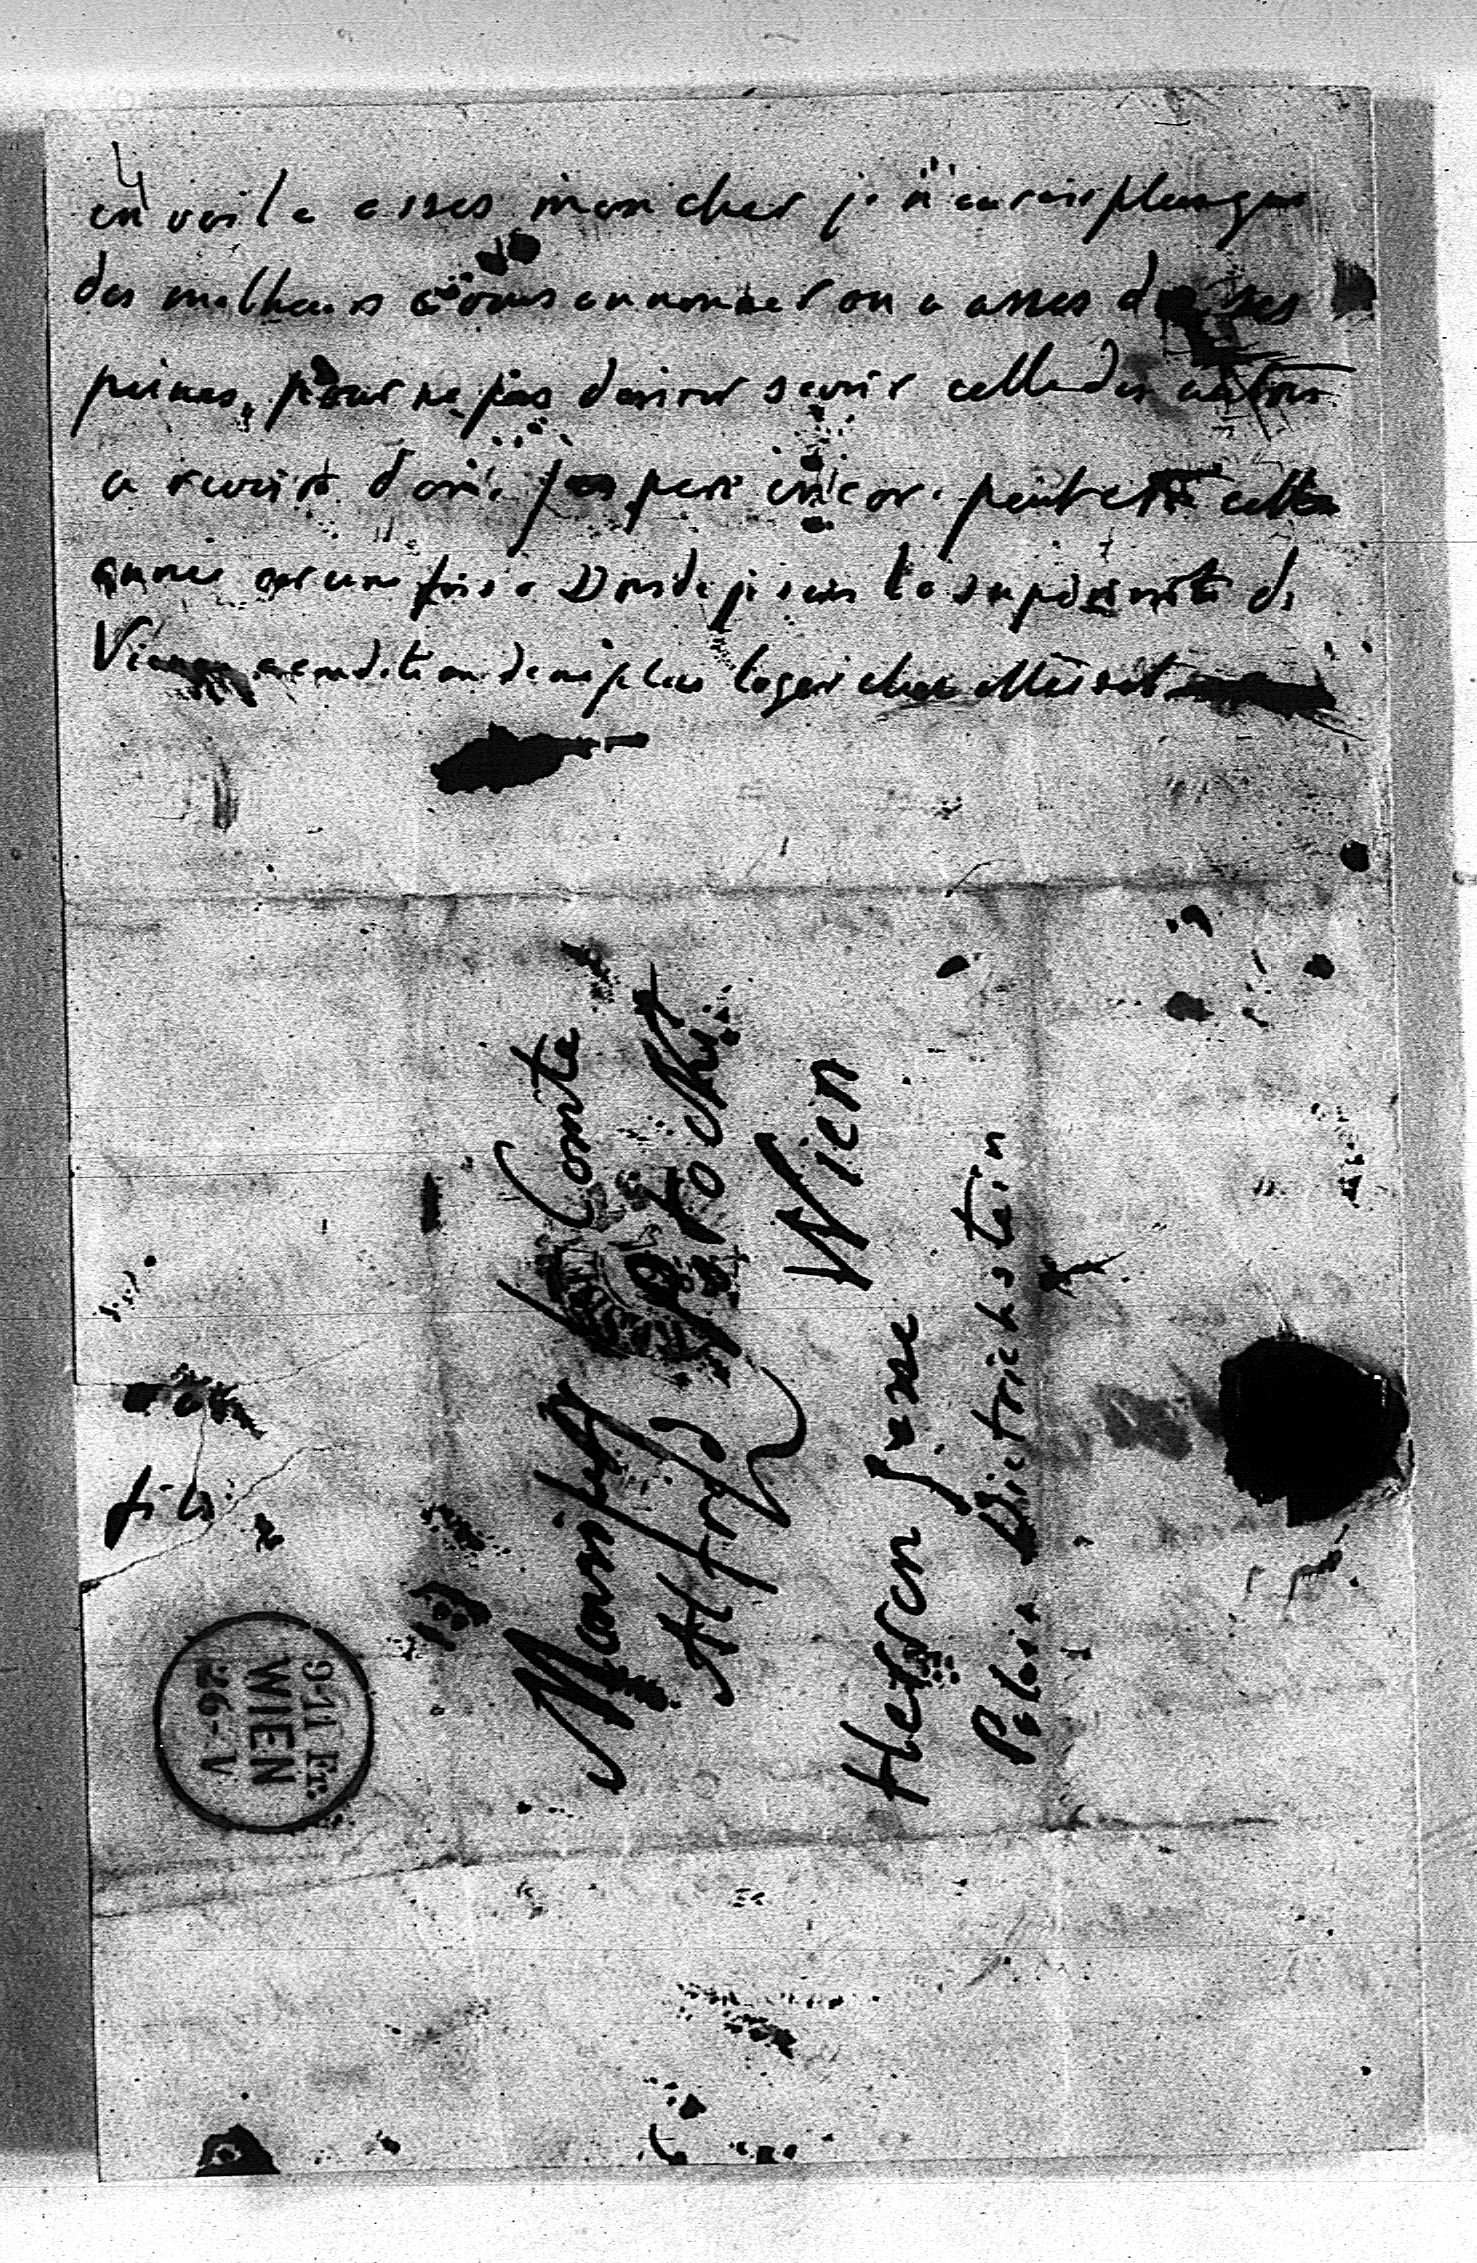 4
en voila asses mon cher je n'aurais plus que
des malheurs a vous annoncer on a asses de ses
peines, pour ne pas desirer savoir celle des autres
a revoir donc j'es pere encore peut etre cette
annee car une fois a je suis de
Vienne a condition de ne plus loger chez
Monsieur le Comte
Alfred Potocki
Wien
Herren gasse
Palais Dietrichstein
fils
9-11 Fr.
WIEN
26-V